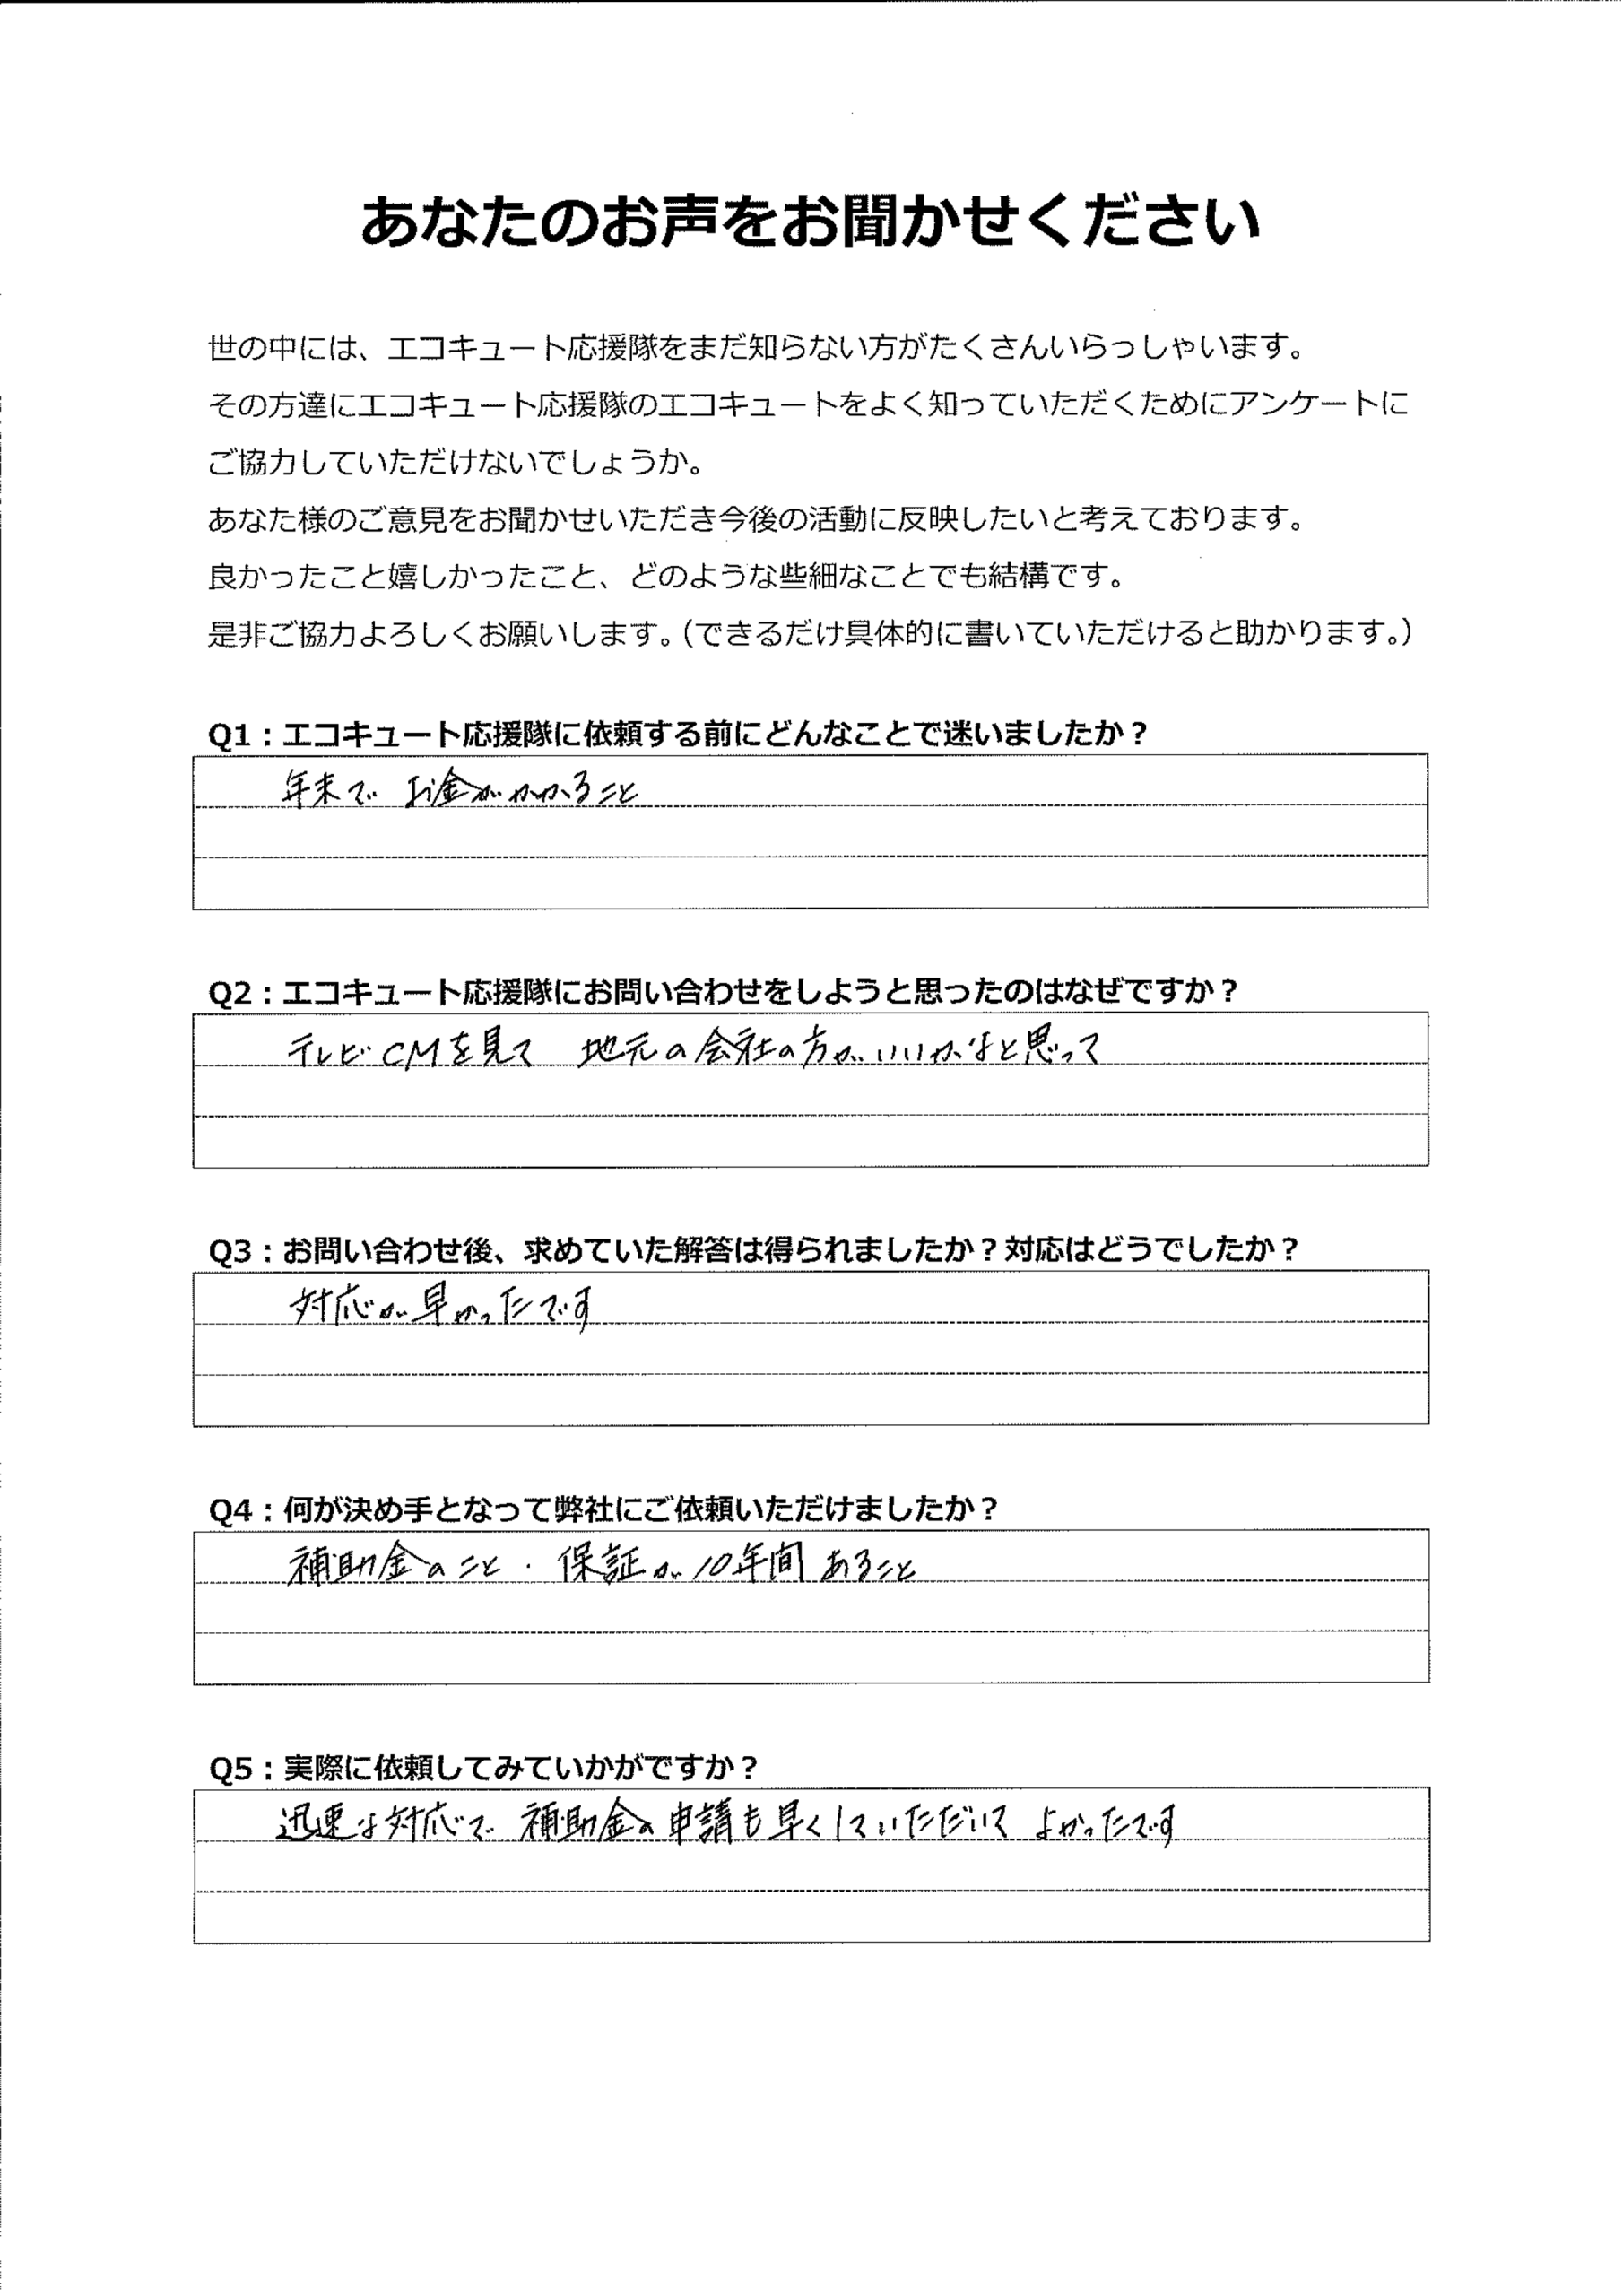 あなたのお声をお聞かせください
世の中には、エコキュート応援隊をまだ知らない方がたくさんいらっしゃいます。
その方達にエコキュート応援隊のエコキュートをよく知っていただくためにアンケートに
ご協力していただけないでしょうか。
あなた様のご意見をお聞かせいただき今後の活動に反映したいと考えております。
良かったこと嬉しかったこと、どのような些細なことでも結構です。
是非ご協力よろしくお願いします。（できるだけ具体的に書いていただけると助かります。）
Q1：エコキュート応援隊に依頼する前にどんなことで迷いましたか？
年末で お金がかかること
Q2：エコキュート応援隊にお問い合わせをしようと思ったのはなぜですか？
テレビCMを見て 地元の会社の方がいいかなと思って
Q3：お問い合わせ後、求めていた解答は得られましたか？対応はどうでしたか？
対応が早かったです
Q4：何が決め手となって弊社にご依頼いただけましたか？
補助金のこと・保証が10年間あること
Q5：実際に依頼してみていかがですか？
迅速な対応で 補助金の申請も早くしていただいて よかったです